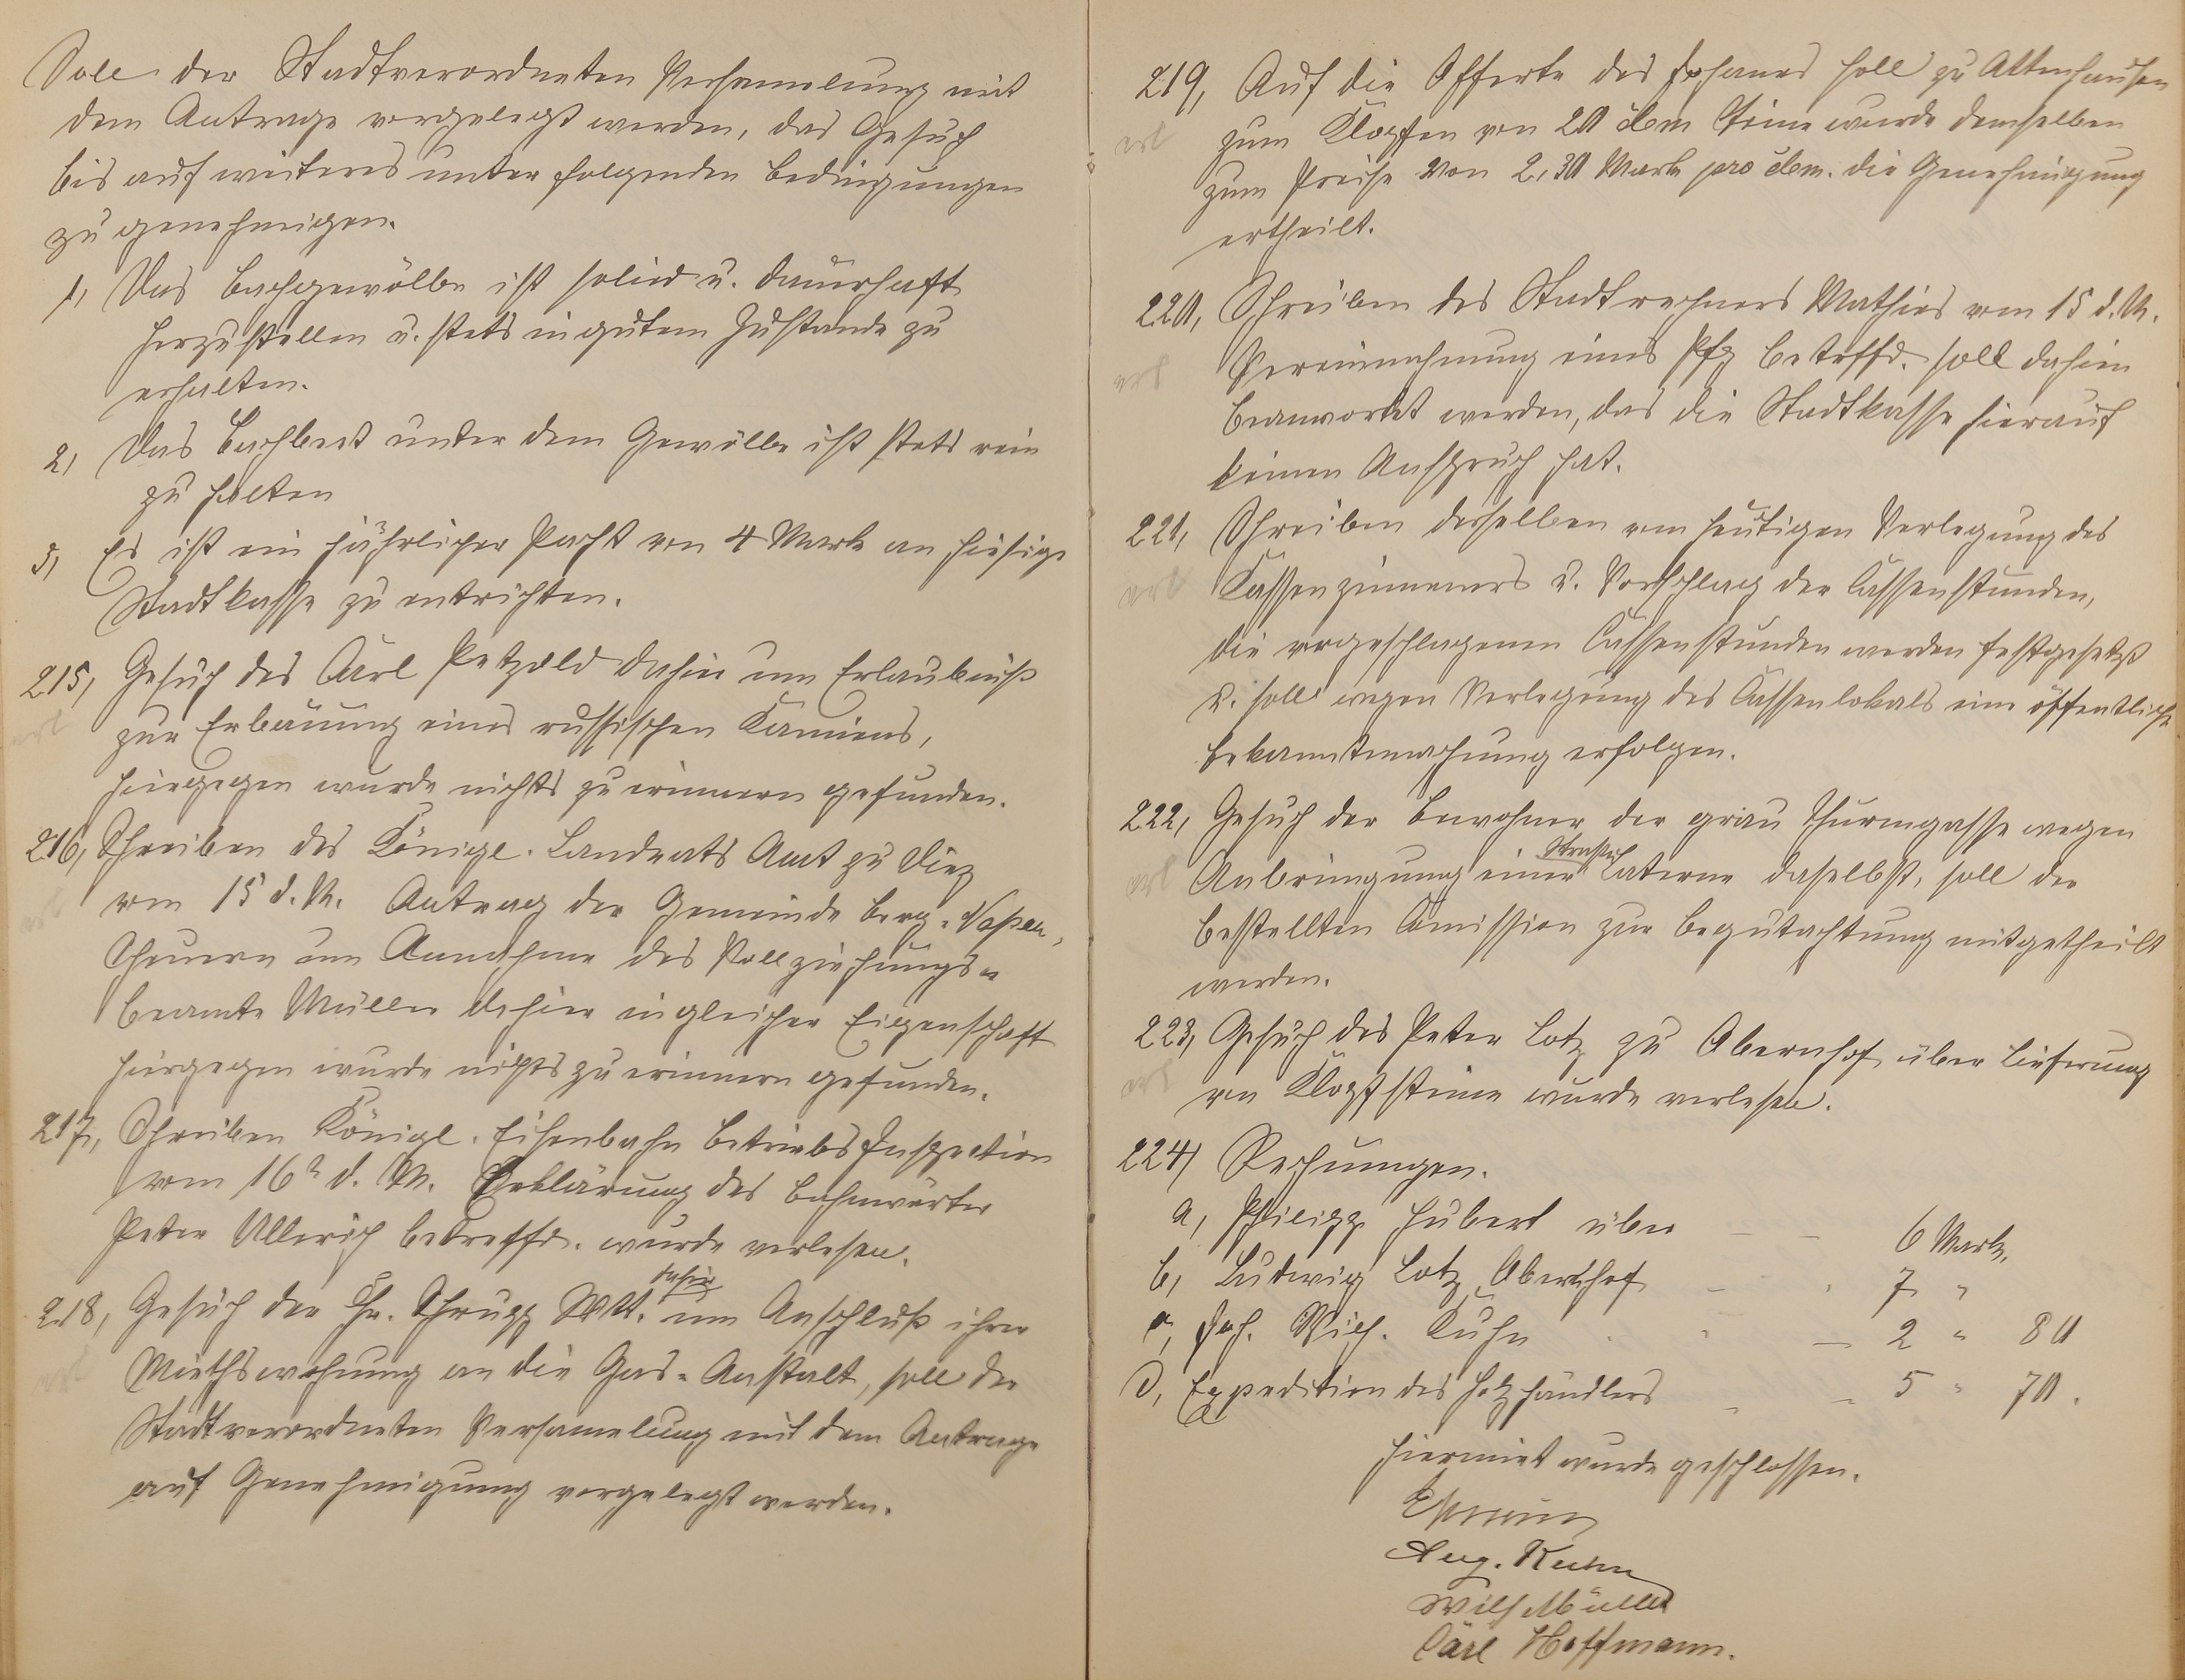 Soll der Stadtverordneten Versammlung mit
dem Antrage vorgelegt werden, das Gesuch
bis auf weiteres unter folgenden Bedingungen
zu genehmigen.
1, Das Bachgewölbe ist solid u. dauerhaft
herzustellen u. stets in gutem Zustande zu
erhalten.
2, Das Bachbett unter dem Gewölbe ist stets rein
zu halten
3, Es ist ein jährlicher Pacht von 4 Mark an hiesige
Stadtkasse zu entrichten.
215, Gesuch des Carl Petzold dahier um Erlaubniß
zur Erbauung eines russischen Kamins,
hiergegen wurde nichts zu erinnern gefunden.
216, Schreiben des Königl. Landrats Amt zu Diez
vom 15 d. M. Antrag der Gemeinde Berg-Nassau,
Scheuern um Annahme des Vollziehungs-
beamte Müller dahier in gleicher Eigenschaft
hiergegen wurde nichts zu erinnern gefunden.
217, Schreiben Königl. Eisenbahn Betriebs Inspection
vom 16t d. M. Erklärung des Bahnwärter
Peter Ullerich betreffd. wurde verlesen.
218, Gesuch der Chr. Schrupp Wtt. dahier um Anschluß ihrer
Miethswohnung an die Gas-Anstalt, soll der
Stadtverordneten Versammlung mit dem Antrage
auf Genehmigung vorgelegt werden.
219, Auf die Offerte des Johannes Holl zu Attenhausen
zum Klopfen von 20 cbm Steine wurde demselben
zum Preise von 2,30 Mark pro cbm. die Genehmigung
ertheilt.
220, Schreiben des Stadtrechners Mathies vom 15 d. M.
Vereinnahmung eines Pfg betrffd. soll dahin
beanwortet werden, das die Stadtkasse hierauf
keinen Anspruch hat.
221, Schreiben desselben vom heutigen Verlegung des
Kassenzimmers u. Vorschlag der Cassenstunden,
die vorgeschlagenen Cassenstunden werden festgesetzt
u. soll wegen Verlegung des Cassenlokals eine öffentliche
Bekanntmachung erfolgen.
222, Gesuch der Bewohner der grau Thurmgasse wegen
Anbringung einer Straßen Laterne daselbst, soll der
bestellten Comission zur Begutachtung mitgetheilt
werden.
223, Gesuch des Peter Lotz zu Obernhof über Lieferung
von Klopfsteine wurde verlesen.
224, Rechnungen.
a, Philipp Hubert über 6 Mark,
b, Ludwig Lotz Obernhof 7 "
c, Joh. Wilh. Kuhn 2 " 80
d, Expedition des Holzhändlers 5 " 70.
Hiermit wurde geschlossen.
Aug. Kuhn
Wilh Müller
Carl Hoffmann.